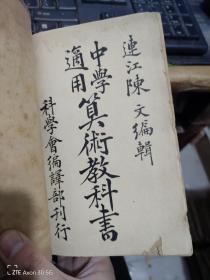 連江陳文編輯
中學
適用
算術教科書
科學會編譯部刊行
ZTE Axon